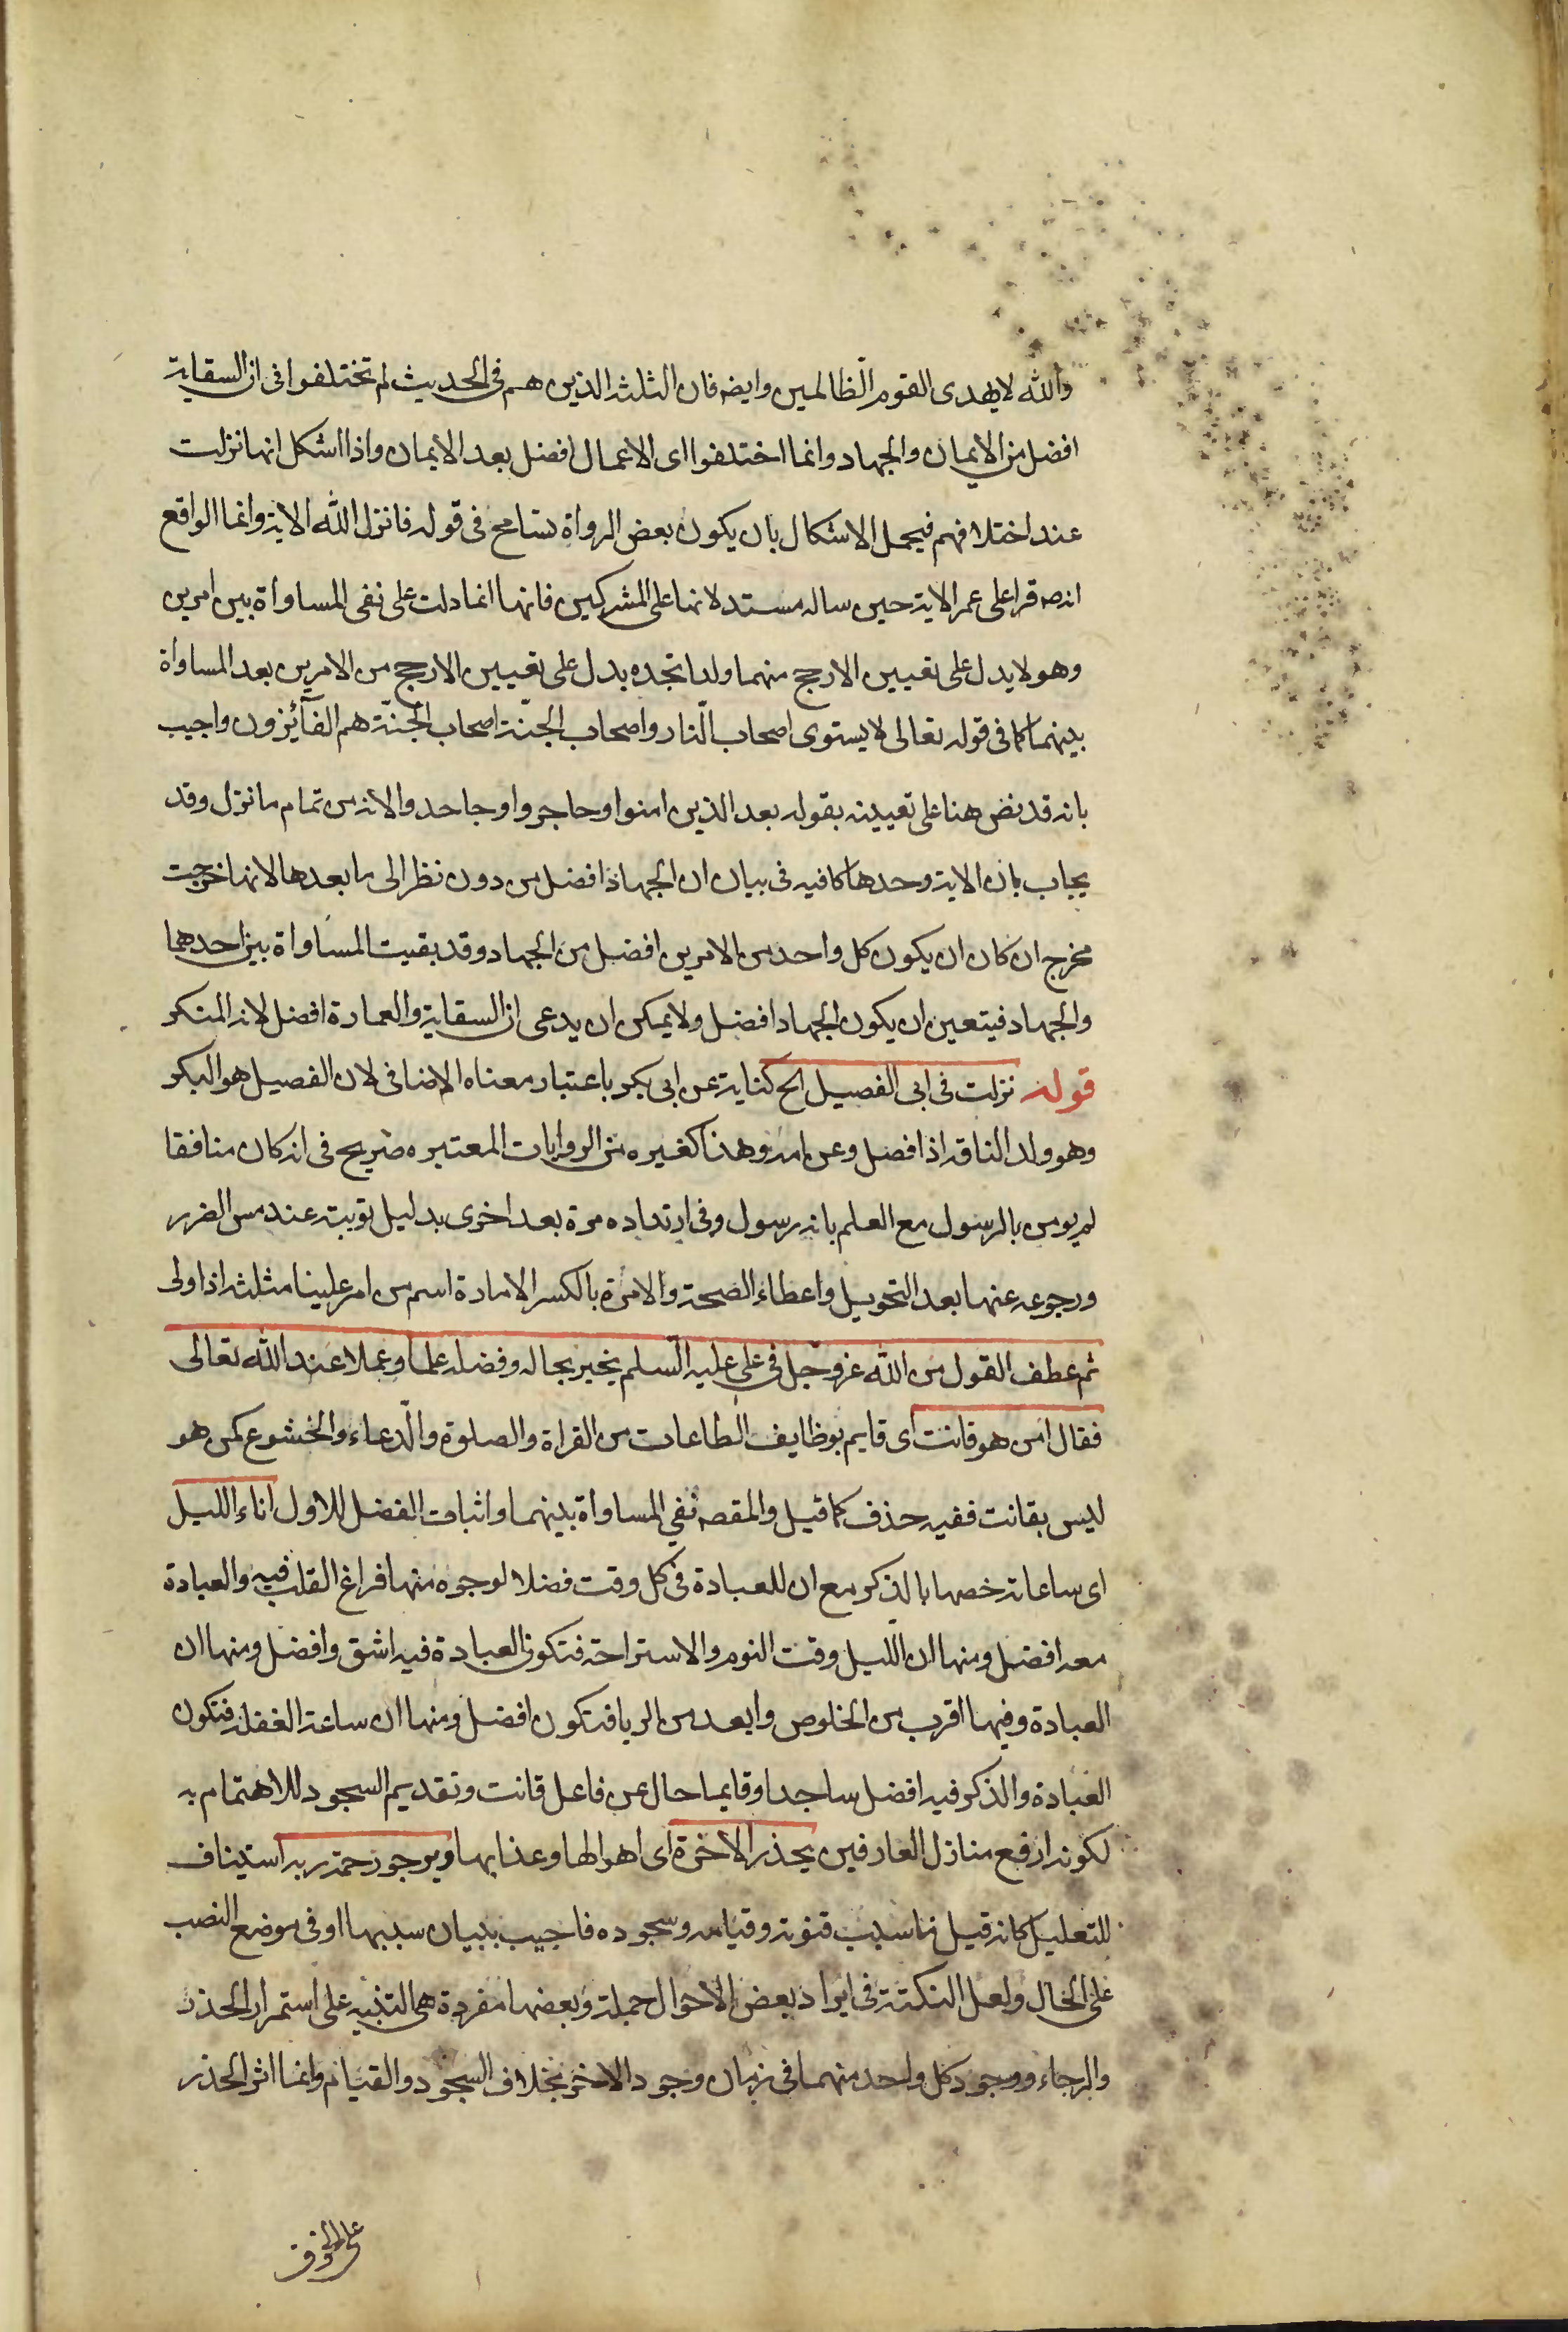 والله لا يهدى القوم الظالمين وايضه فان الثلثه الذين هم فى الحديث لم تختلفوا فى ان السقاية
افضل من الايمان والجهاد وانما اختلفوا اى الاعمال افضل بعد الايمان واذا اشكل انها نزلت
عند اختلافهم فيحمل الاشكال بان يكون بعض الرواة تسامح فى قوله فانزل الله الاية وانما الواقع
انه صه قرا على عمر الاية حين ساله مستدلا بها على المشركين فانها انما دلت على نفى المساواة بين امرين
وهو لا يدل على تعيين الارجح منهما ولذا تجده يدل على تعيين الارجح من الامرين بعد المساواة
بينهما كما فى قوله تعالى لا يستوى اصحاب النار واصحاب الجنة اصحاب الجنة هم الفآئزون واجيب
بانه قد نص هنا على تعيينه بقوله بعد الذين امنوا وهاجروا وجاهدوا الانه من تمام ما نزل وقد
يجاب بان الاية وحدها كافيه فى بيان ان الجهاد افضل من دون نظر الى ما بعدها لانها خرجت
مخرج ان كان ان يكون كل واحد من الامرين افضل من الجهاد وقد بقيت المساواة بين احدهما
والجهاد فيتعين ان يكون الجهاد افضل ولا يمكن ان يدعى ان السقاية والعمارة افضل لانه المنكر
قوله نزلت فى ابى الفصيل الخ كناية عن ابى بكر باعتبار معناه الاضافى لان الفصيل هو البكر
وهو ولد الناقه اذا فصل وعن امه وهذا كغيره من الروايات المعتبره صريح فى انه كان منافقا
لم يومن بالرسول مع العلم بانه رسول وفى ارتداده مرة بعد اخرى بدليل توبته عند مس الضرر
ورجوعه عنها بعد التحويل واعطاء الصحة والامرة بالكسر الامارة اسم من امر علينا مثلثه اذا ولى
ثم عطف القول من الله عز وجل فى على عليه السلم يخبر بحاله وفضله علما وعملا عند الله تعالى
فقال امن هو قانت اى قايم بوظايف الطاعات من القراة والصلوة والدعاء والخشوع كمن هو
ليس بقانت ففيه حذف كما قيل والمقصه نفى المساواة بينهما واثبات الفضل للاول اناء الليل
اى ساعاته خصها بالذكر مع ان للعبادة فى كل وقت فضلا لوجوه منها فراغ القلب فيه والعبادة
معه افضل ومنها ان الليل وقت النوم والاستراحة فتكون العبادة فيه اشق وافضل ومنها ان
العبادة وفيها اقرب من الخلوص وابعد من الريا فتكون افضل ومنها ان ساعة الغفلة فتكون
العبادة والذكر فيه افضل ساجدا وقايما حال عن فاعل قانت وتقديم السجود للاهتمام به
لكونه ارفع منازل العارفين يحذر الاخرة اى اهوالها وعذابها ويرجو رحمة ربه استيناف
للتعليل كانه قيل ما سبب قنوته وقيامه وسجوده فاجيب ببيان سببها او فى موضع النصب
على الحال ولعل النكتة فى ايراد بعض الاحوال جملة وبعضها مفردة هى التنبيه على استمرار الحذر
والرجاء ووجود كل واحد منهما فى زمان وجود الاخر بخلاف السجود والقيام وانما اثر الحذر